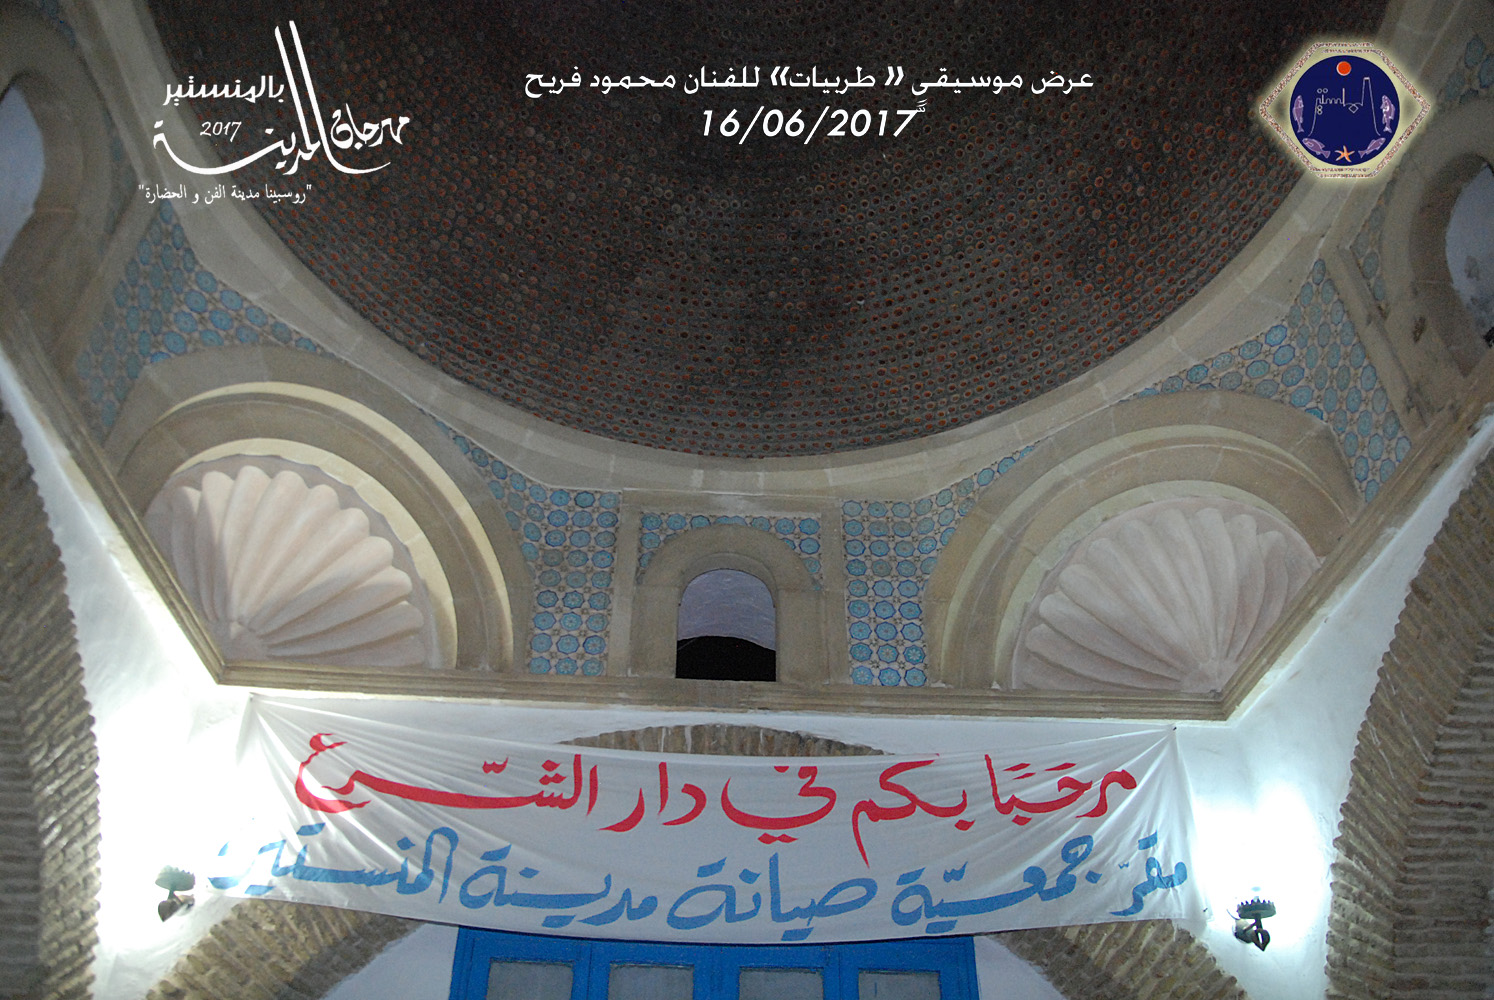 مهرجان المدينة
بالمنستير
2017
"روسبينا مدينة الفن و الحضارة"
عرض موسيقي « طربيات» للفنان محمود فريح
16/06/2017
مرحبا بكم في دار الشّرع
مقرّ جمعيّة صيانة مدينة المنستير